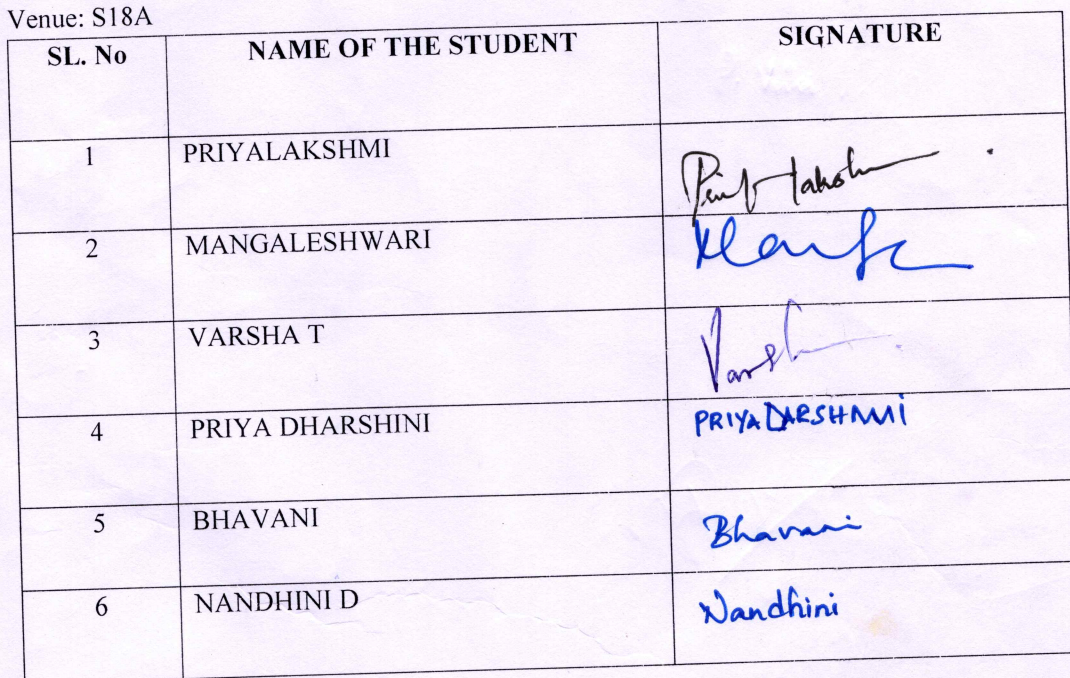 Venue: S18A
SL. No NAME OF THE STUDENT SIGNATURE
1 PRIYALAKSHMI
2 MANGALESHWARI
3 VARSHA T
4 PRIYA DHARSHINI PRIYADARSHINI
5 BHAVANI Bhavani
6 NANDHINI D Nandhini